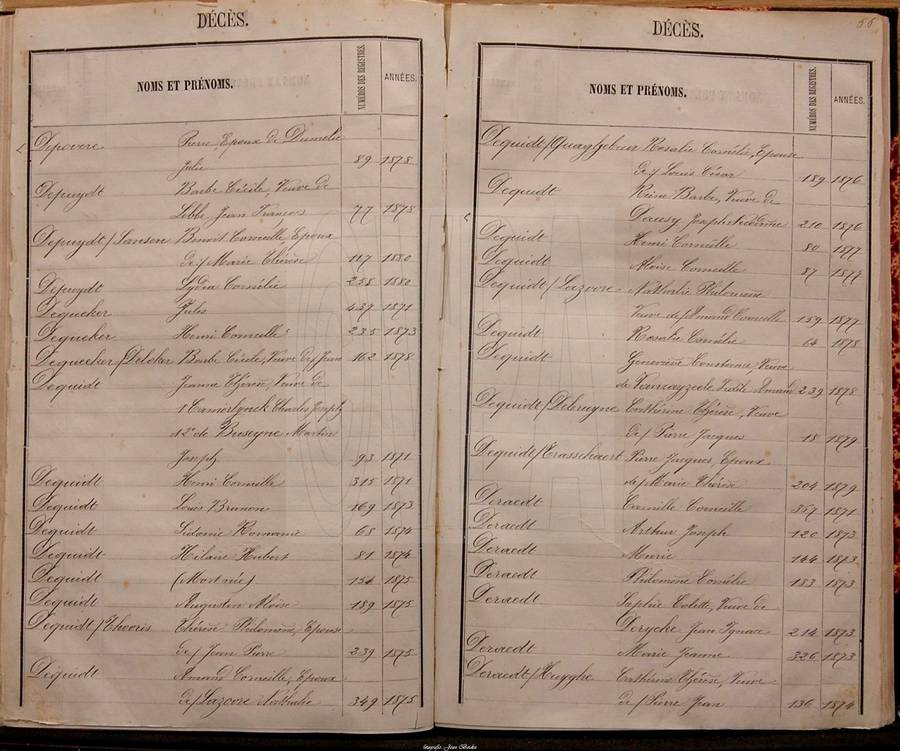 DÉCÈS.
NOMS ET PRÉNOMS. NUMÉROS DES REGISTRES. ANNÉES.
Depovere Pierre, Epoux de Dumelie
Julie 89 1878
Depuydt Barbe Cécile, Veuve de
Lebbe, Jean François 77 1878
Depuydt/Sansen Benoit Corneille, Epoux
de/ Marie Thérèse 117 1880
Depuydt Lydia Cornélie 235 1880
Dequeker Jules 437 1871
Dequeker Henri Corneille 235 1873
Dequecker/Deloker Barbe Cécile, Veuve de/ Jean 162 1878
Dequidt Jeanne Thérèse, Veuve de
1° Camerlynck Charles Joseph
et 2° de Buseyne Martin
Joseph 93 1871
Dequidt Henri Corneille 315 1871
Dequidt Louis Brunon 169 1873
Dequidt Sidonie Romanie 68 1874
Dequidt Hilaire Hubert 81 1874
Dequidt (Mort-née) 154 1875
Dequidt Augustin Aloïse 189 1875
Dequidt/Thooris Thérèse Philomène, Epouse
de/ Jean Pierre 239 1875
Dequidt Amand Corneille, Epoux
de/ Lazoore Nathalie 349 1875
56
DÉCÈS.
NOMS ET PRÉNOMS. NUMÉROS DES REGISTRES. ANNÉES.
Dequidt/Quaghebeur Rosalie Cornélie, Epouse
de/ Louis César 189 1876
Dequidt Reine Barbe, Veuve de
Dausy Joseph Nicodème 210 1876
Dequidt Henri Corneille 80 1877
Dequidt Aloïse Corneille 87 1877
Dequidt/Lazoore Nathalie Philomène
Veuve de/ Amand Corneille 159 1877
Dequidt Rosalie Cornélie 64 1878
Dequidt Geneviève Constance, Veuve
de Vancayzeele Fidèle Amand 239 1878
Dequidt/Debruyne Cathérine Thérèse, Veuve
de/ Pierre Jacques 18 1879
Dequidt/Trasschaert Pierre Jacques, Epoux
de/ Marie Thérèse 204 1879
Deraedt Camille Corneille 357 1871
Deraedt Arthur Joseph 120 1873
Deraedt Marie 144 1873
Deraedt Philomène Cornélie 183 1873
Deraedt Sophie Colette, Veuve de
Derycke Jean Ignace 214 1873
Deraedt Marie Jeanne 326 1873
Deraedt/Huyghe Cathérine Thérèse, Veuve
de/ Pierre Jean 136 1874